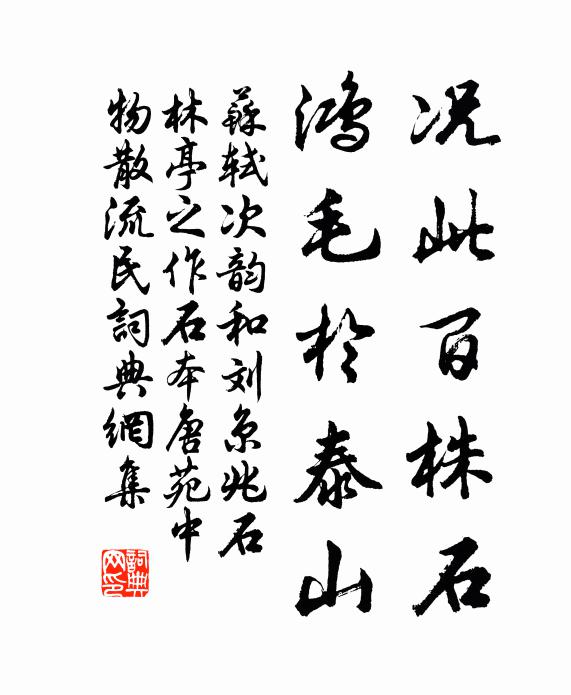 况此百株石
鸿毛於泰山
蘇轼次韵和刘京兆石
林亭之作石本唐苑中
物散流民詞典網集
詞典网印